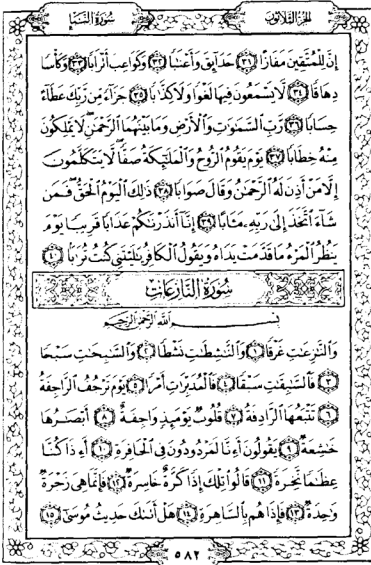 الجزء الثلاثون
سورة النبإ
إِنَّ لِلْمُتَّقِينَ مَفَازًا ٣١ حَدَآئِقَ وَأَعْنَٰبًا ٣٢ وَكَوَاعِبَ أَتْرَابًا ٣٣ وَكَأْسًا
دِهَاقًا ٣٤ لَّا يَسْمَعُونَ فِيهَا لَغْوًا وَلَا كِذَّٰبًا ٣٥ جَزَآءً مِّن رَّبِّكَ عَطَآءً
حِسَابًا ٣٦ رَّبِّ ٱلسَّمَٰوَٰتِ وَٱلْأَرْضِ وَمَا بَيْنَهُمَا ٱلرَّحْمَٰنِ لَا يَمْلِكُونَ
مِنْهُ خِطَابًا ٣٧ يَوْمَ يَقُومُ ٱلرُّوحُ وَٱلْمَلَٰٓئِكَةُ صَفًّا لَّا يَتَكَلَّمُونَ
إِلَّا مَنْ أَذِنَ لَهُ ٱلرَّحْمَٰنُ وَقَالَ صَوَابًا ٣٨ ذَٰلِكَ ٱلْيَوْمُ ٱلْحَقُّ فَمَن
شَآءَ ٱتَّخَذَ إِلَىٰ رَبِّهِۦ مَـَٔابًا ٣٩ إِنَّآ أَنذَرْنَٰكُمْ عَذَابًا قَرِيبًا يَوْمَ
يَنظُرُ ٱلْمَرْءُ مَا قَدَّمَتْ يَدَاهُ وَيَقُولُ ٱلْكَافِرُ يَٰلَيْتَنِى كُنتُ تُرَٰبًا ٤٠
سورة النازعات
بسم الله الرحمن الرحيم
وَٱلنَّٰزِعَٰتِ غَرْقًا ١ وَٱلنَّٰشِطَٰتِ نَشْطًا ٢ وَٱلسَّٰبِحَٰتِ سَبْحًا
٣ فَٱلسَّٰبِقَٰتِ سَبْقًا ٤ فَٱلْمُدَبِّرَٰتِ أَمْرًا ٥ يَوْمَ تَرْجُفُ ٱلرَّاجِفَةُ
٦ تَتْبَعُهَا ٱلرَّادِفَةُ ٧ قُلُوبٌ يَوْمَئِذٍ وَاجِفَةٌ ٨ أَبْصَٰرُهَا
خَٰشِعَةٌ ٩ يَقُولُونَ أَءِنَّا لَمَرْدُودُونَ فِى ٱلْحَافِرَةِ ١٠ أَءِذَا كُنَّا
عِظَٰمًا نَّخِرَةً ١١ قَالُوا۟ تِلْكَ إِذًا كَرَّةٌ خَاسِرَةٌ ١٢ فَإِنَّمَا هِىَ زَجْرَةٌ
وَٰحِدَةٌ ١٣ فَإِذَا هُم بِٱلسَّاهِرَةِ ١٤ هَلْ أَتَىٰكَ حَدِيثُ مُوسَىٰٓ ١٥
٥٨٢